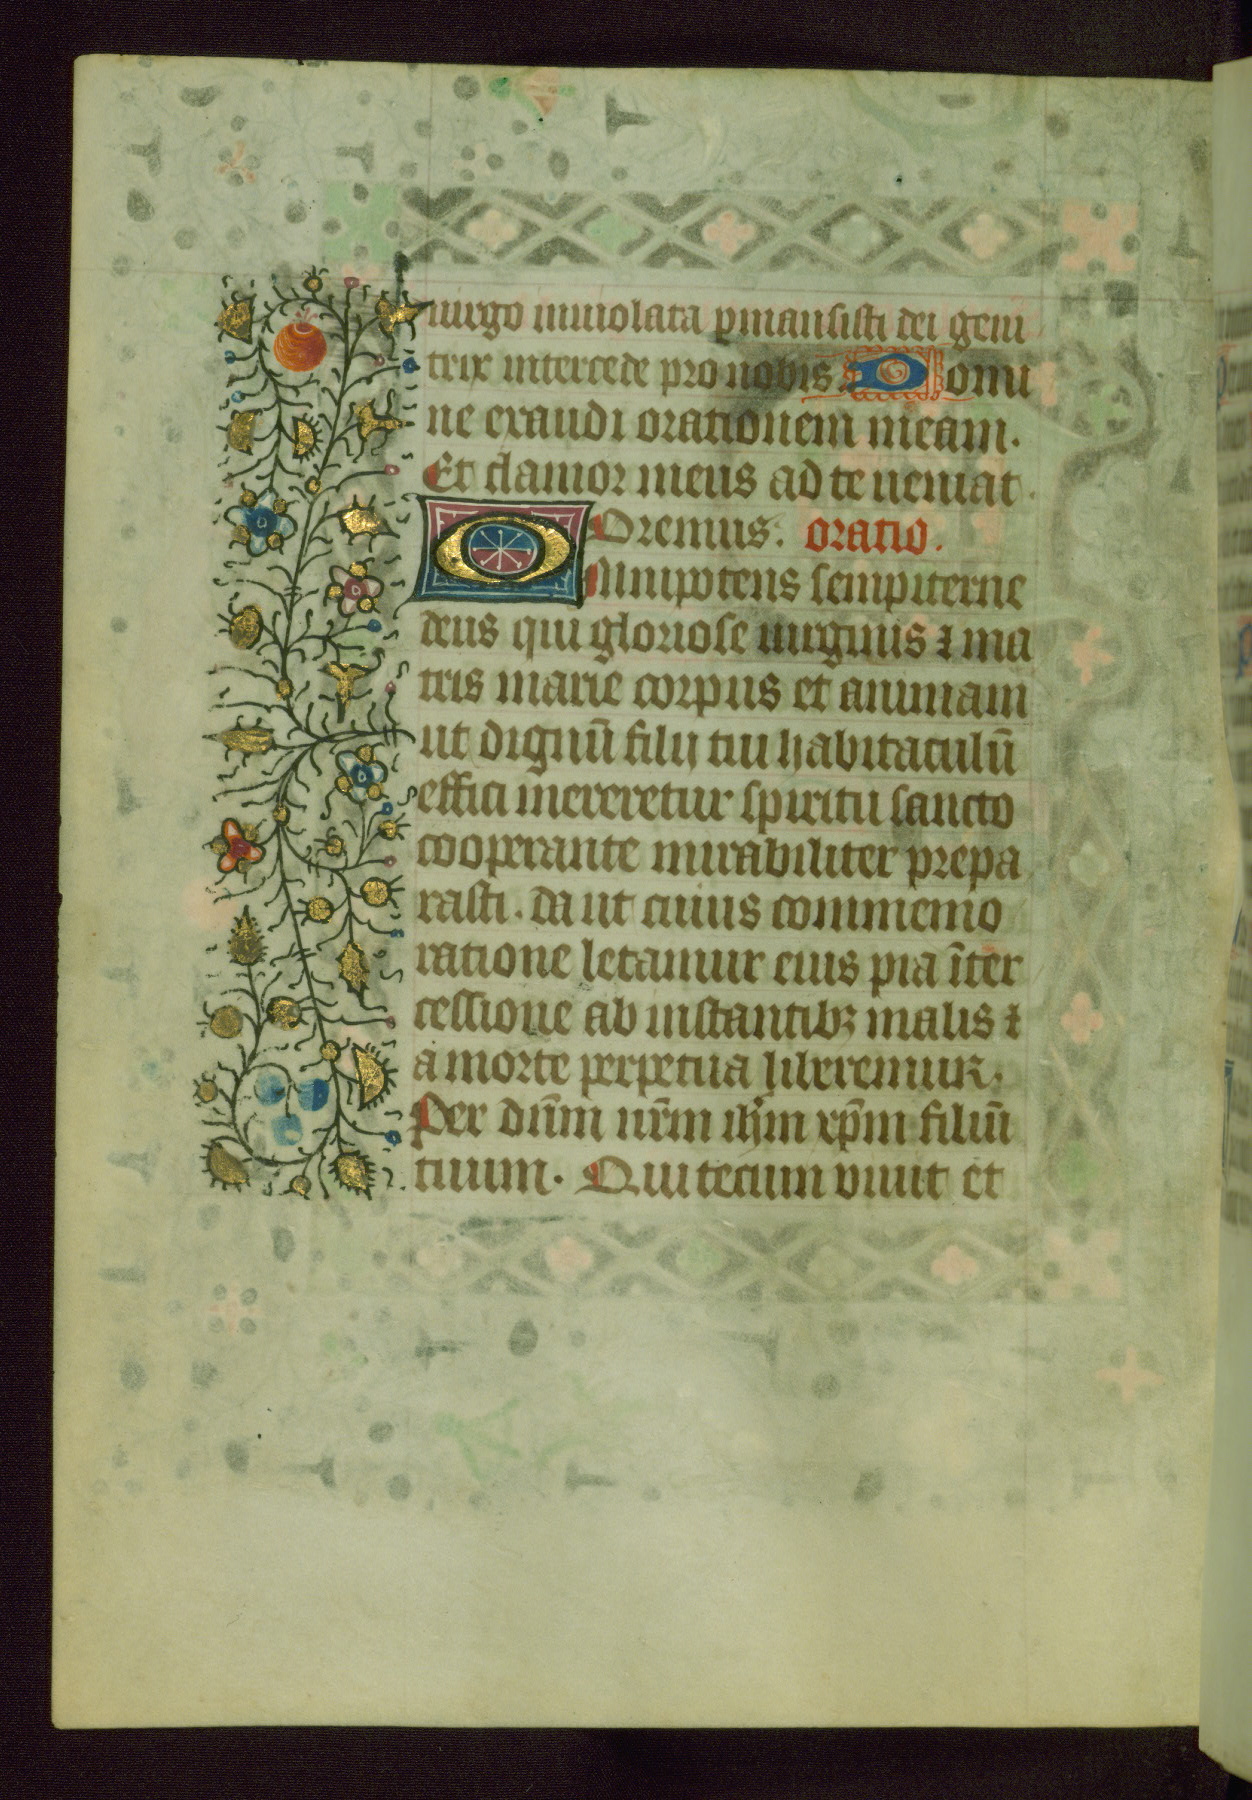 uirgo inuiolata pmansisti dei geni
trix intercede pro nobis. Domi
ne exaudi orationem meam.
Et clamor meus ad te ueniat.
Oremus. oratio.
Omnipotens sempiterne
deus qui gloriose uirginis ⁊ ma
tris marie corpus et animam
ut dignū filij tui habitaculū
effici mereretur spiritu sancto
cooperante mirabiliter prepa
rasti. da ut cuius commemo
ratione letamur eius pia īter
cessione ab instantibꝫ malis ⁊
a morte perpetua liberemur.
Per dn̄m nr̄m ih̄m xp̄m filiū
tuum. Qui tecum viuit et